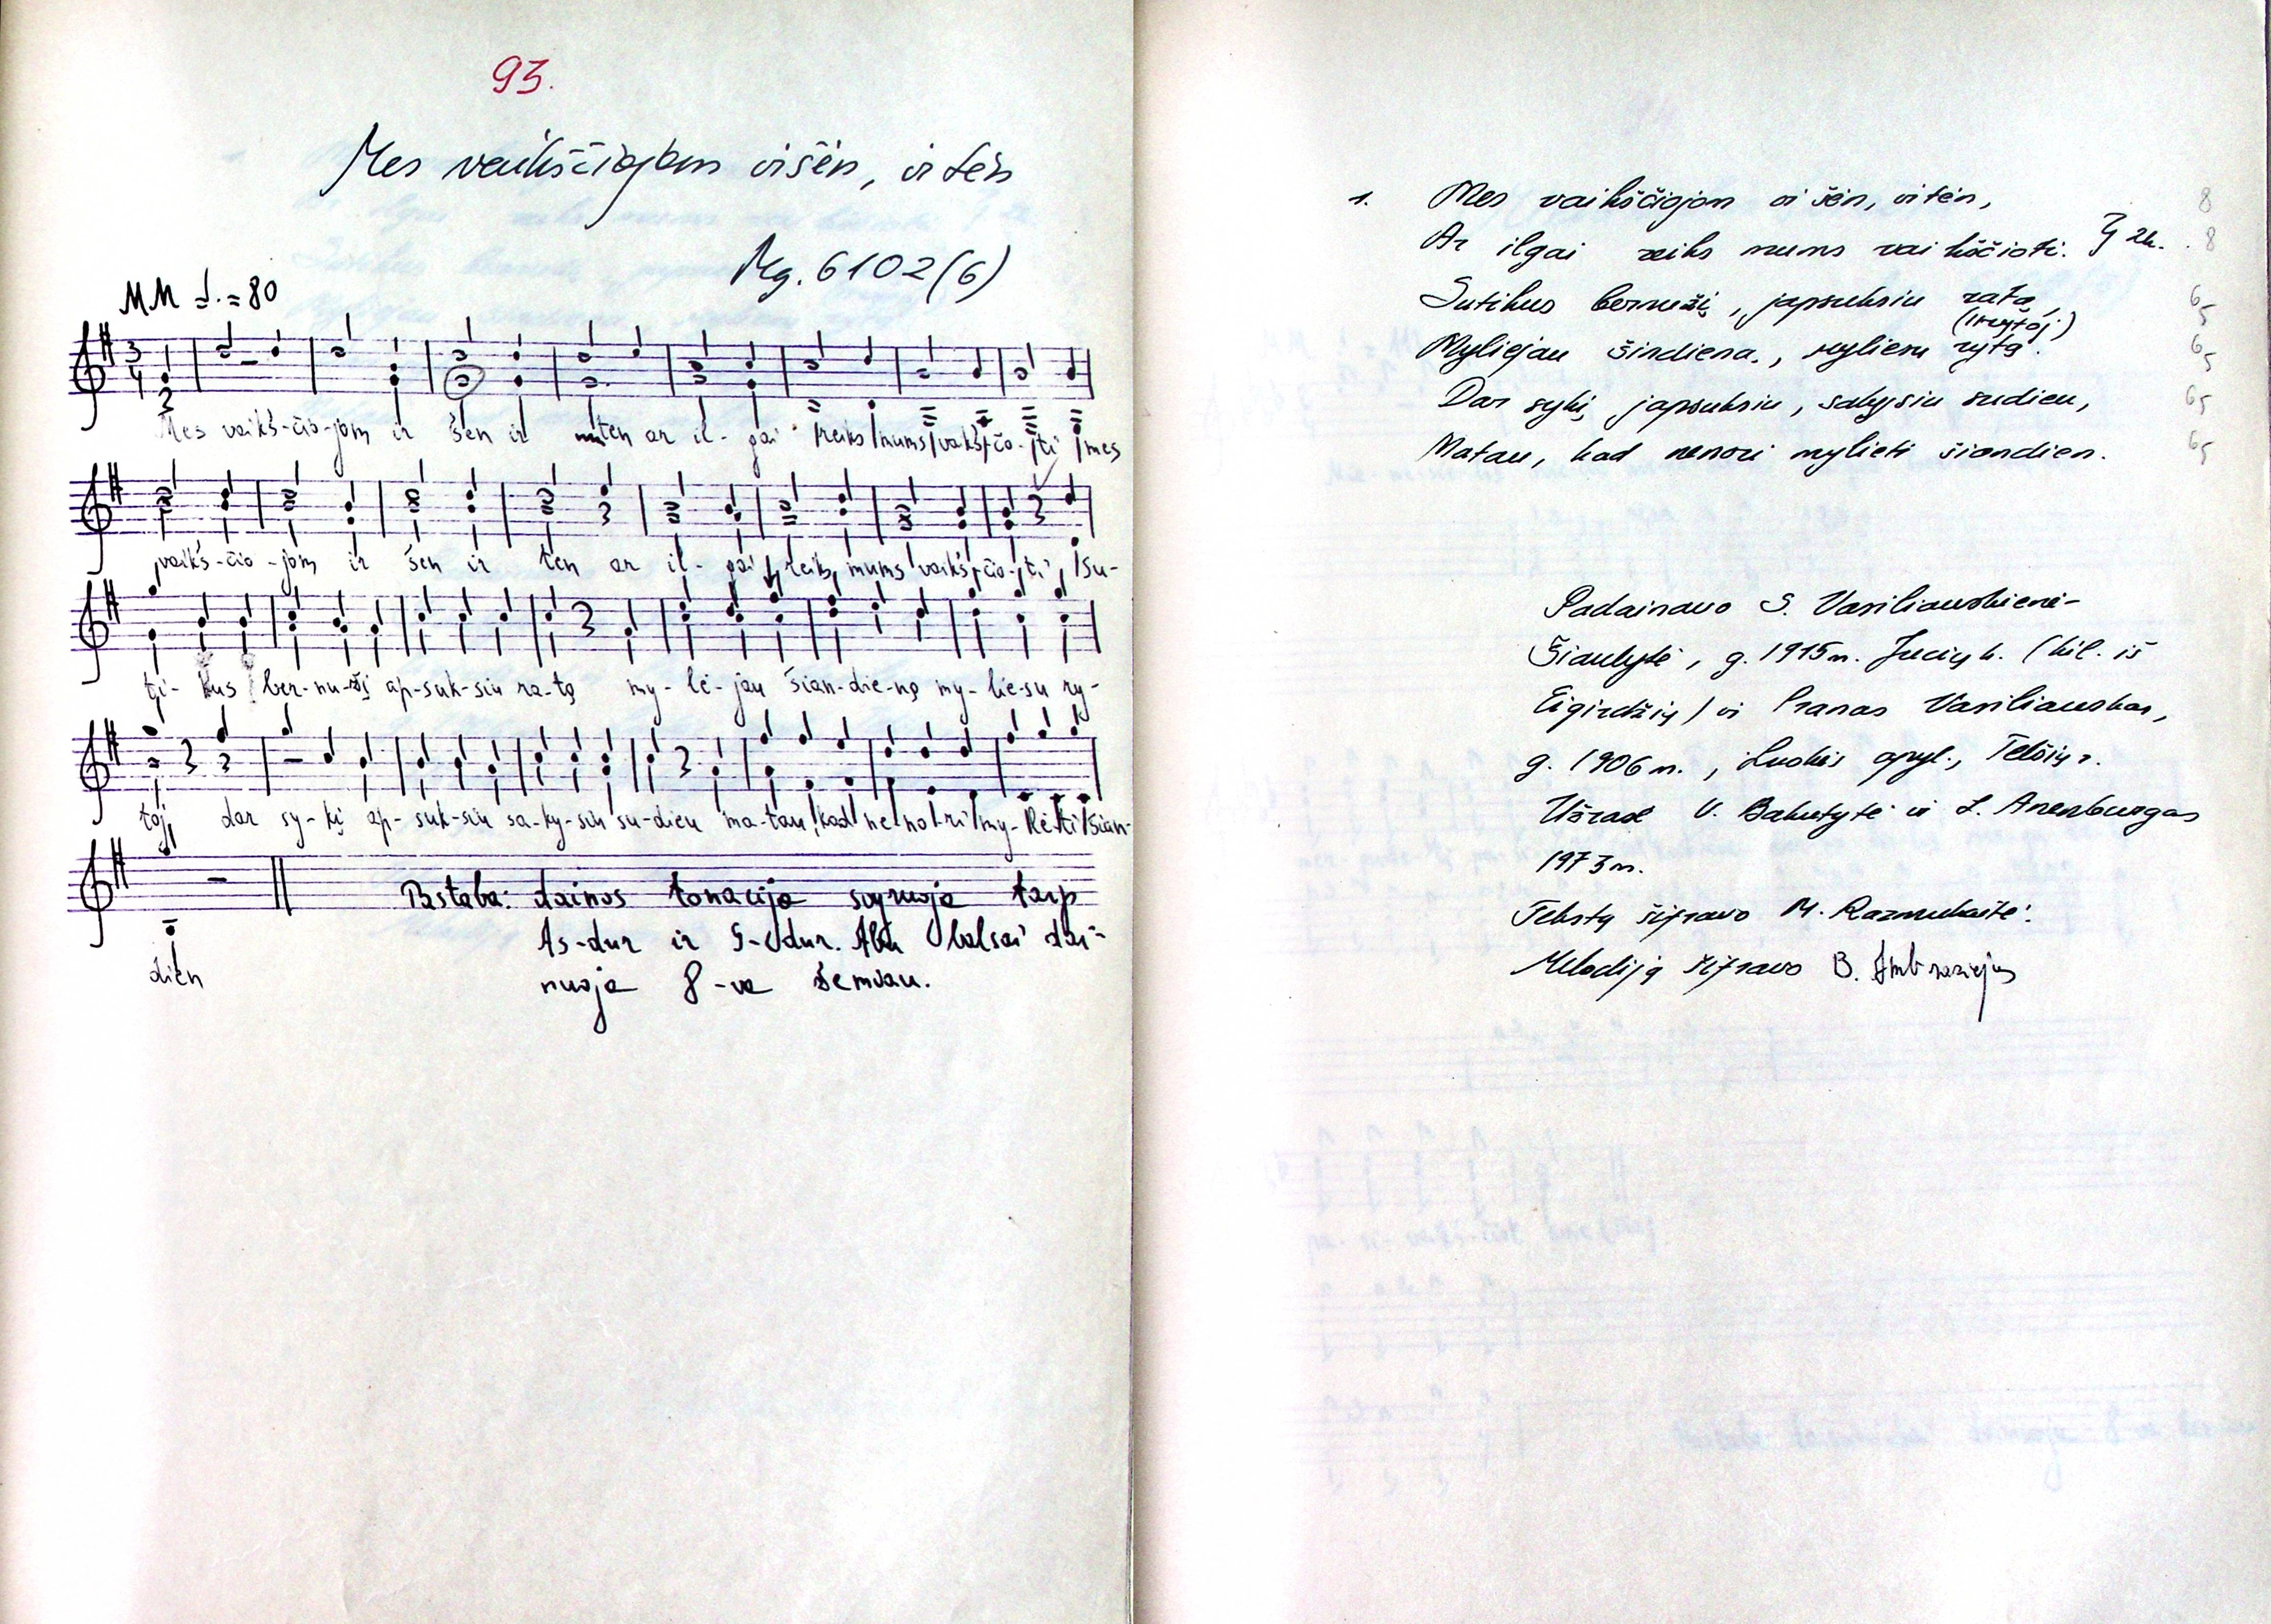 93.
Mes vaikščiojom ir šen, ir ten
Mg. 6102(6)
MM = 80
Mes vaikš-čio-jom ir šen ir ten ar il-gai reiks mums vaikš-čio-ti mes
vaikš-čio-jom ir šen ir ten ar il-gai reiks mums vaikš-čio-ti su-
ti-kus ber-nu-žį ap-suk-siu ra-tą my-lė-jau šian-die-ną my-lie-su ry-
toj dar sy-kį ap-suk-siu sa-ky-siu su-dieu ma-tau kad ne no-ri my-lie-ti šian-
dien
Pastaba: dainos tonacija svyruoja tarp
As-dur ir G-dur. Abu balsai dai-
nuoja 8-va žemiau.
1. Mes vaikščiojom ir šen, ir ten, 8
Ar ilgai reiks mums vaikščioti. } 2k. 8
Sutikus bernužį, japsuksiu ratą, 65
(irrytoj.)
Myliejau šindiena, myliesu rytą. 65
Dar sykį japsuksiu, sakysiu sudieu, 65
Matau, kad nenori mylieti šiandien. 65
Padainavo S. Vasiliauskienė-
Šiaulytė, g. 1915 m. Jucių k. (kil. iš
Eigirdžių) ir Pranas Vasiliauskas,
g. 1906 m., Luokės apyl., Telšių r.
Užrašė V. Bakutytė ir L. Anenburgas
1973 m.
Tekstą šifravo M. Razmukaitė.
Melodiją šifravo B. Ambraziejus